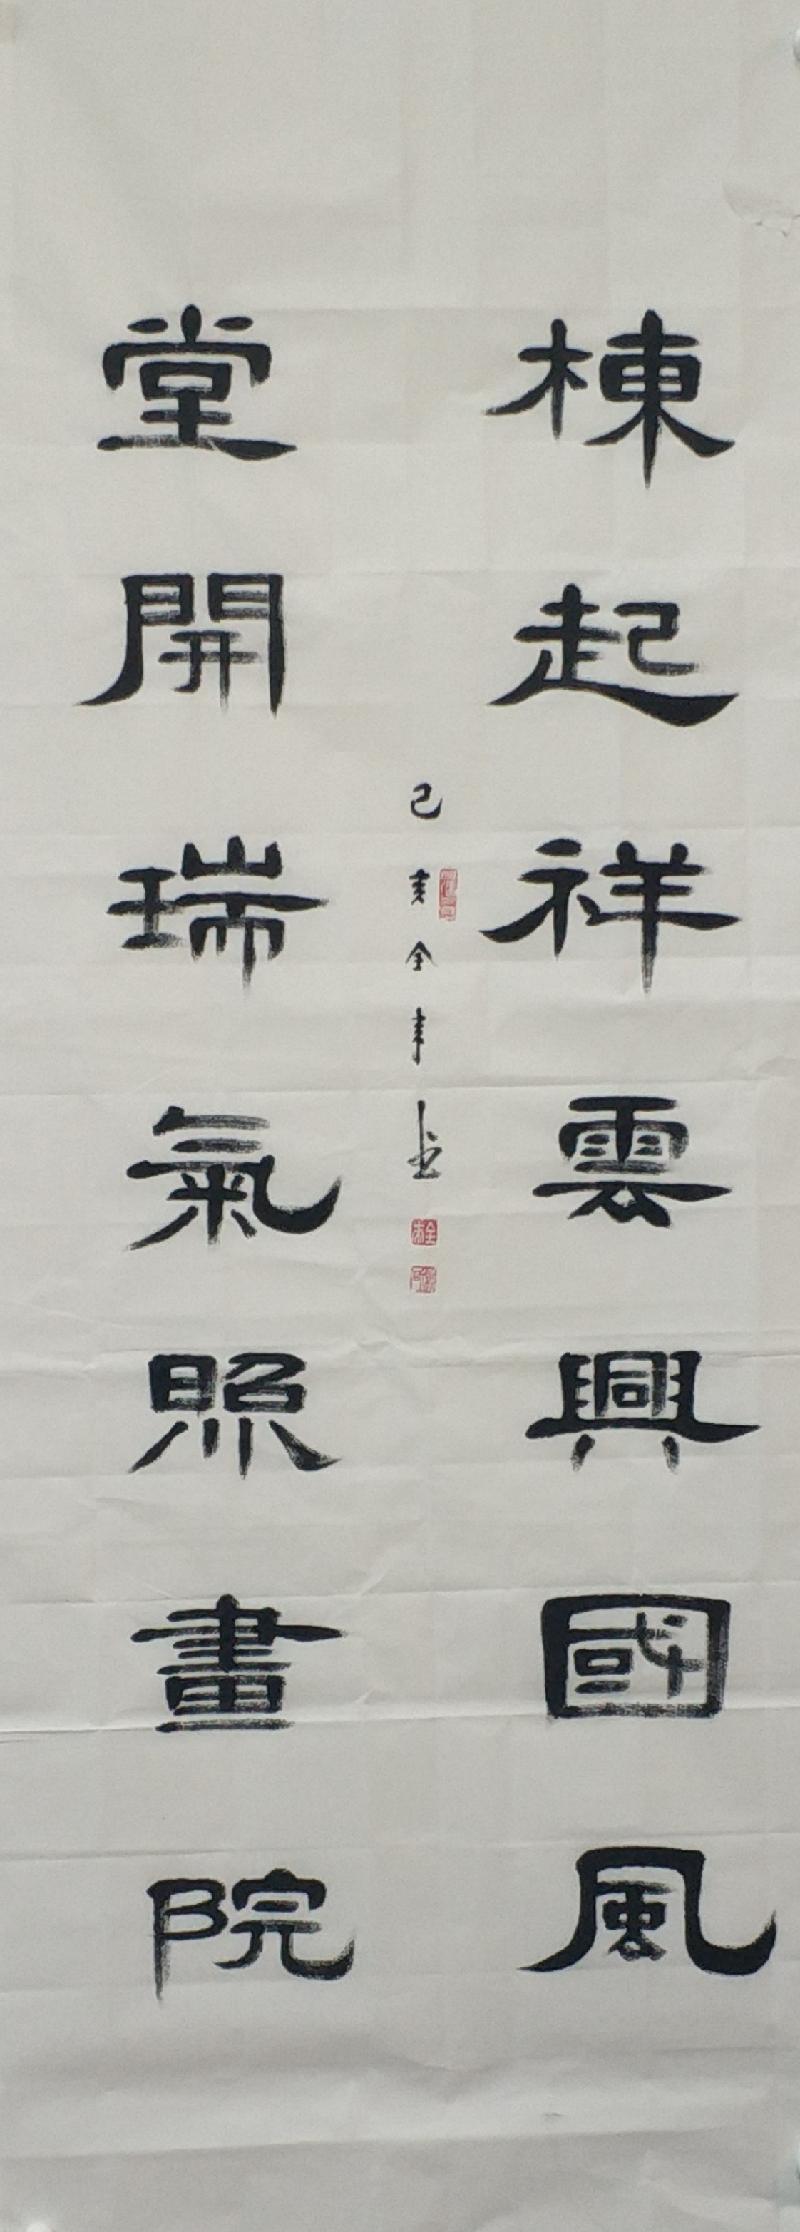 棟起祥雲興國風
堂開瑞氣照畫院
己亥全聿書